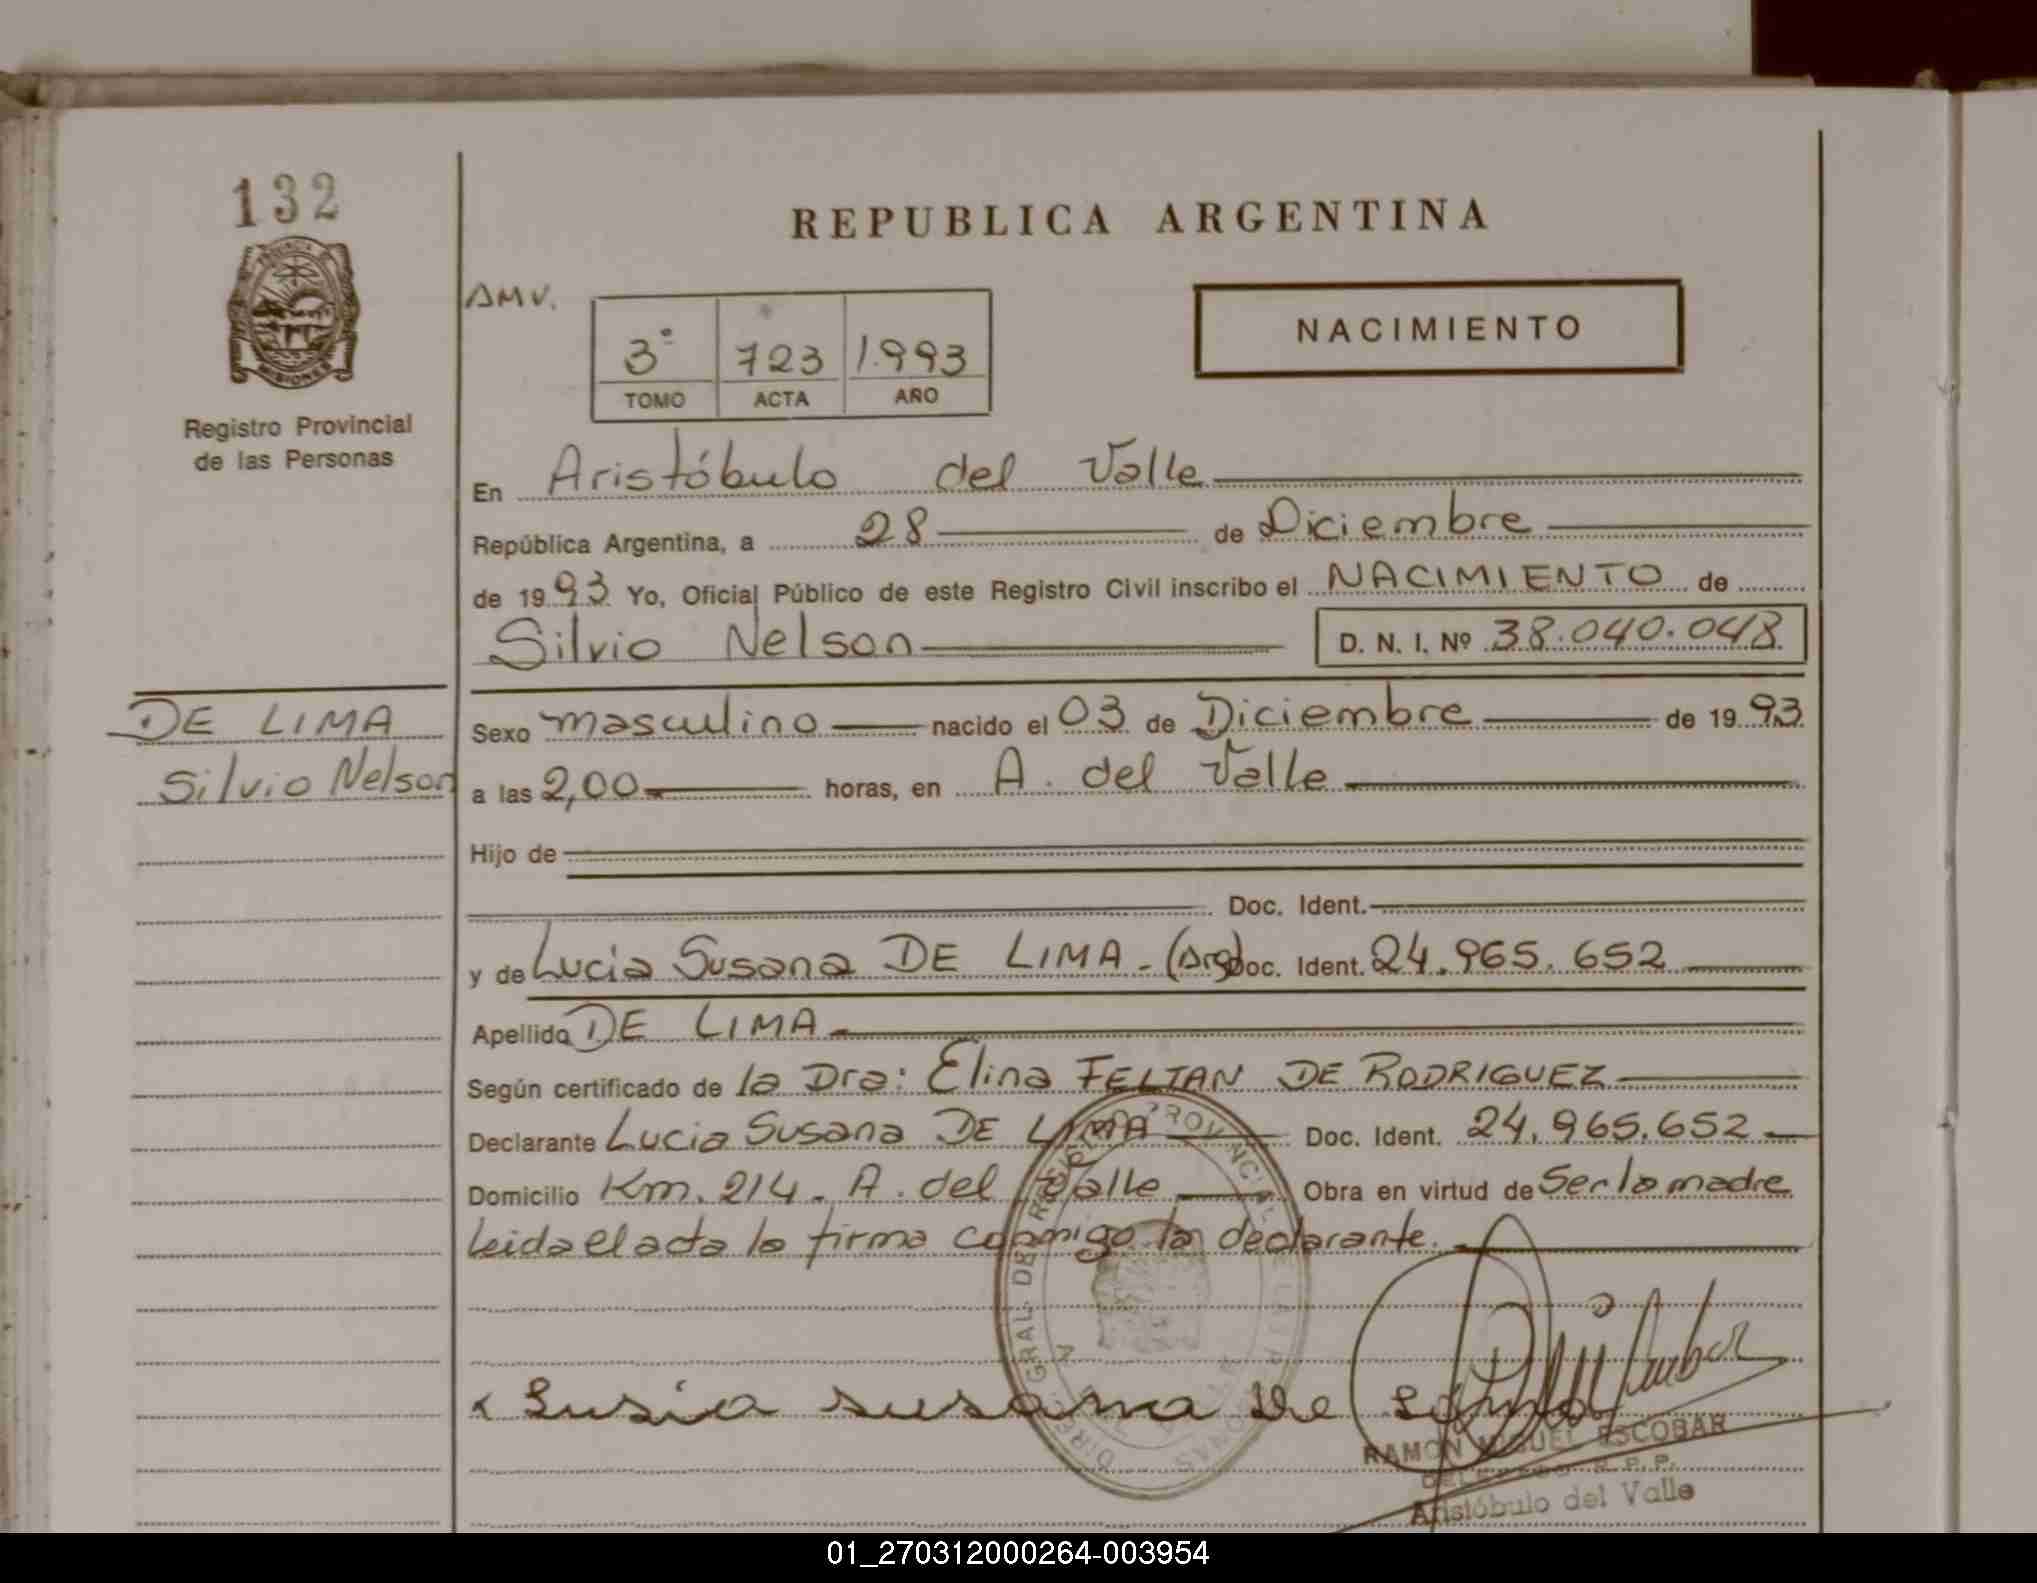 132
REPUBLICA ARGENTINA
AMV.
3º 723 1.993
TOMO ACTA AÑO
NACIMIENTO
MISIONES
Registro Provincial
de las Personas
En Aristóbulo del Valle
República Argentina, a 28 de Diciembre
de 1993 Yo, Oficial Público de este Registro Civil inscribo el NACIMIENTO de
Silvio Nelson D. N. I. Nº 38.040.048
DE LIMA
Silvio Nelson
Sexo masculino nacido el 03 de Diciembre de 1993
a las 2,00 horas, en A. del Valle
Hijo de
Doc. Ident.
y de Lucia Susana DE LIMA - (Arg) Doc. Ident. 24.965.652
Apellido DE LIMA
Según certificado de la Dra: Elina FELTAN DE RODRIGUEZ
Declarante Lucia Susana DE LIMA Doc. Ident. 24.965.652
Domicilio Km. 214 - A. del Valle Obra en virtud de Ser la madre
leida el acta la firma conmigo la declarante.
Susia susana De Lima
RAMON MIGUEL ESCOBAR
R.P.P.
Aristóbulo del Valle
01_270312000264-003954